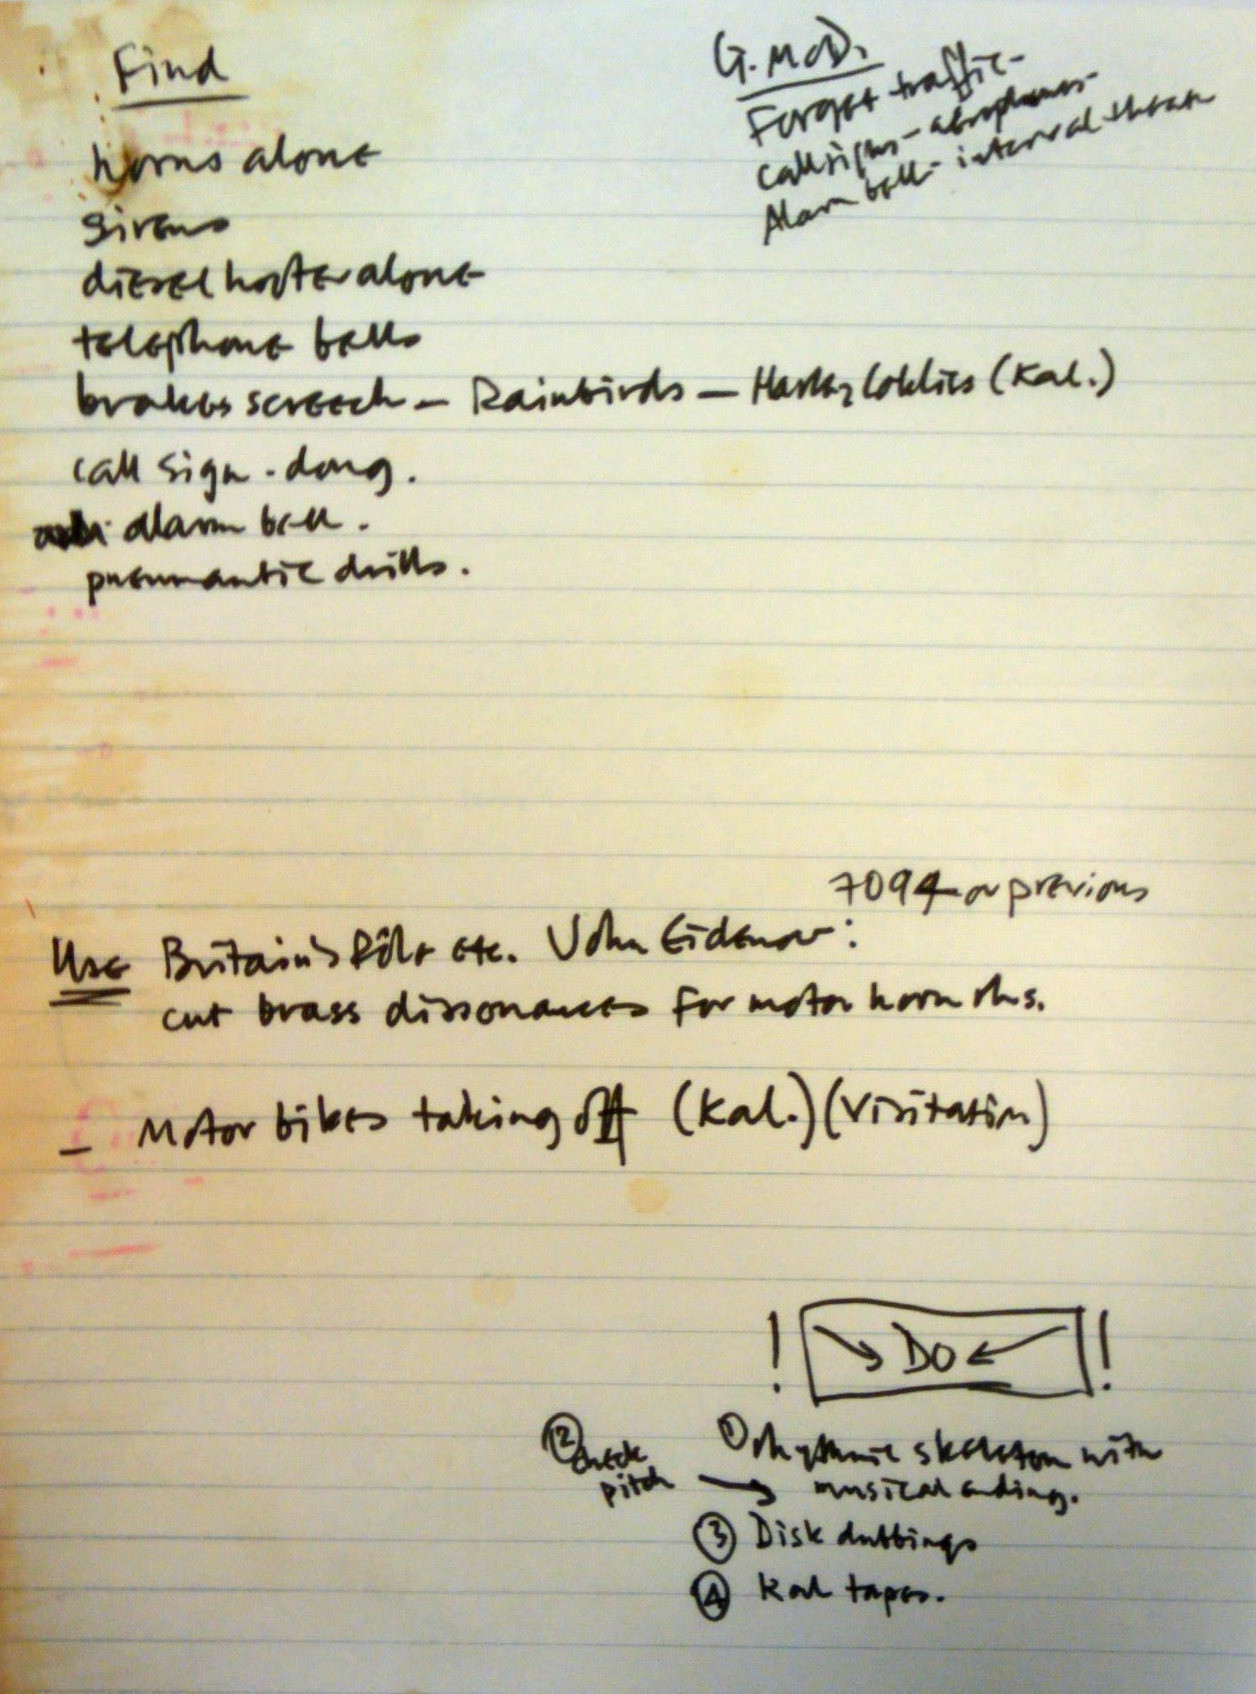 Find
horns alone
sirens
diesel hooter alone
telephone bells
brakes screech - Rainbirds - (Kal.)
call sign - dong.
alarm bell.
pneumantic drills.
G. Mod.
Forget traffic -
call signs - aeroplanes -
Alarm bell - interval theatre
7094 or previous
Use Britain's Rôle etc. John Eidenow:
cut brass dissonances for motor horn rhs.
- Motor bikes taking off (Kal.) (Visitation)
! DO !
① rhythmic skeleton with
musical ending.
② check
pitch
③ Disk dubbings
④ Kal tapes.